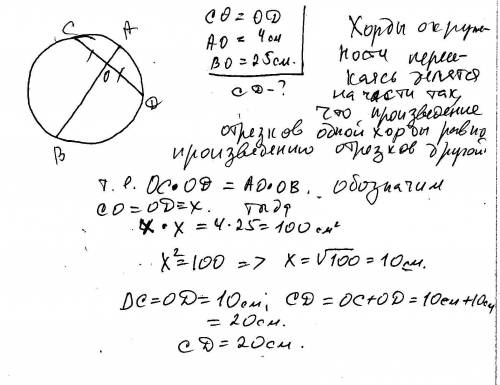 C A
O
D
B
CO = OD
AO = 4см
BO = 25см.
CD - ?
Хорды окруж-
ности пересе-
каясь делятся
на части так,
что произведение
отрезков одной хорды равно
произведению отрезков другой
т.е. OC·OD = AO·OB. обозначим
CO = OD = x. тогда
x·x = 4·25 = 100 см²
x² = 100 => x = √100 = 10 см.
DC = OD = 10 см; CD = OC + OD = 10 см + 10 см
= 20 см.
CD = 20 см.